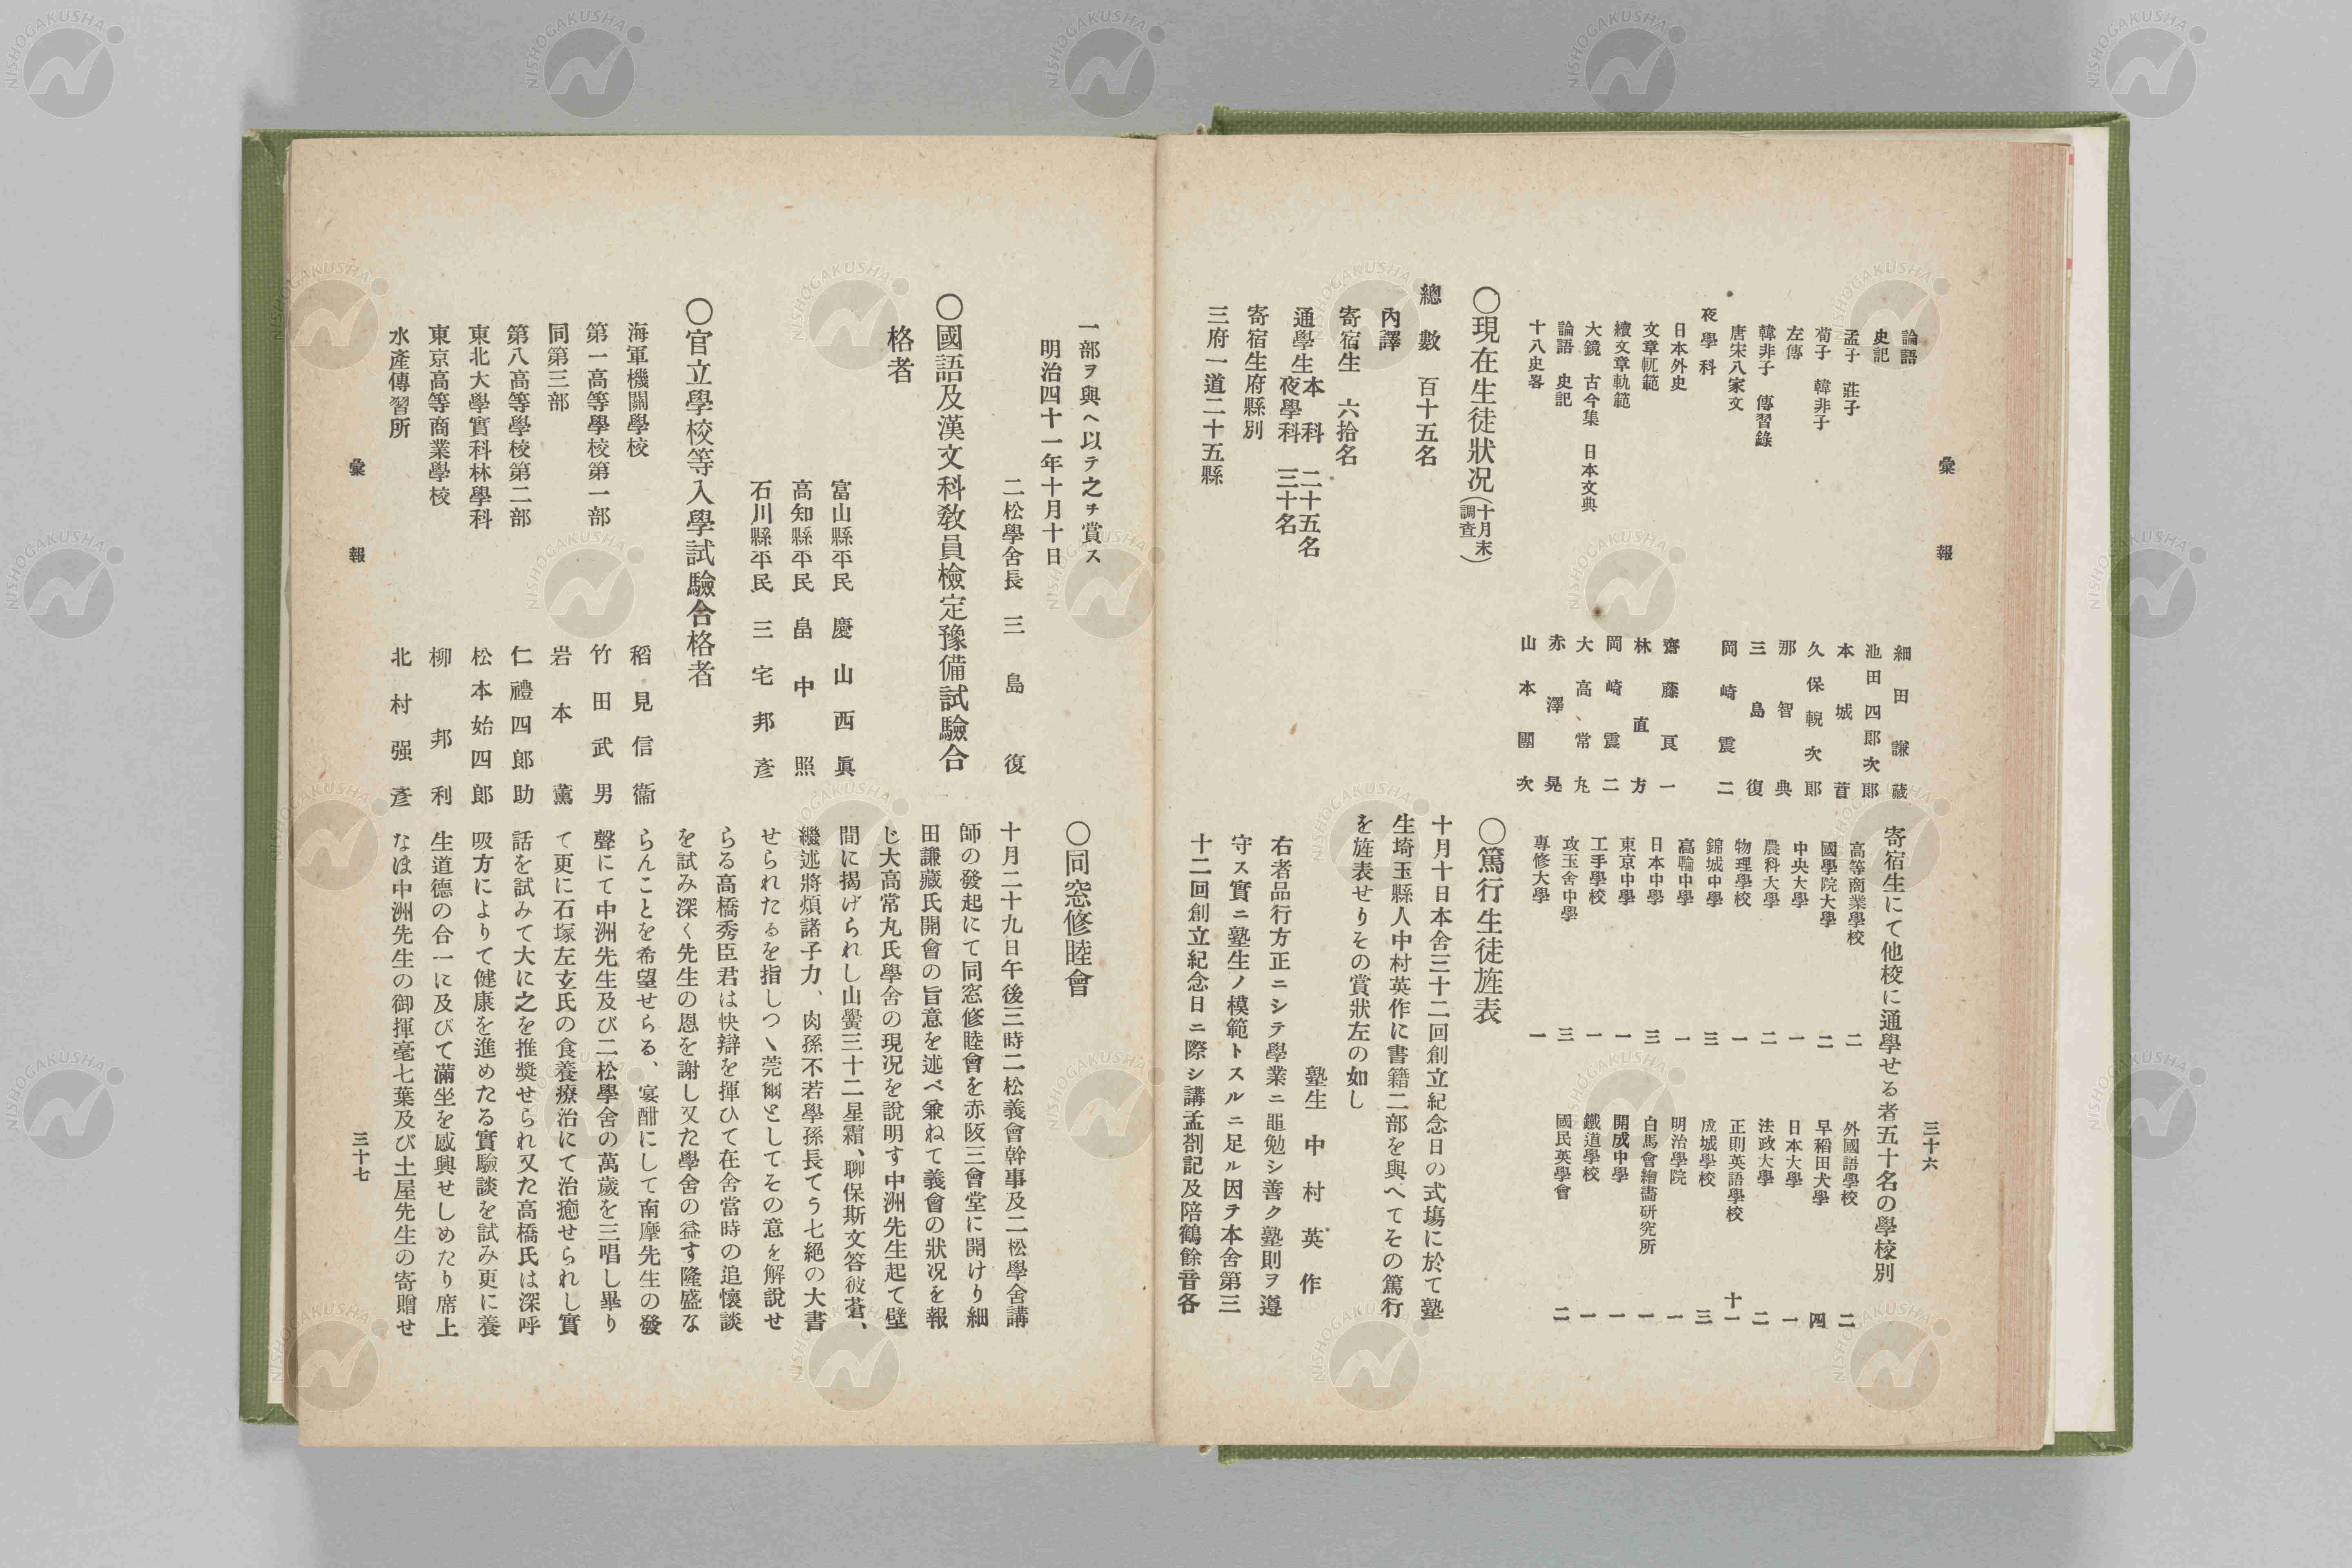 彙報
三十六
論語 細田謙藏
史記 池田四郎次郎
孟子 莊子 本城蕡
荀子 韓非子 久保輗次郎
左傳 那智典
韓非子 傳習錄 三島復
唐宋八家文 岡崎震二
夜學科
日本外史 齋藤良一
文章軌範 林直方
續文章軌範 岡崎震二
大鏡 古今集 日本文典 大高常丸
論語 史記 赤澤晃
十八史畧 山本團次
〇現在生徒狀況(十月末調查)
總數 百十五名
內譯
寄宿生 六拾名
通學生 本科 二十五名
夜學科 三十名
寄宿生府縣別
三府一道二十五縣
寄宿生にて他校に通學せる者五十名の學校別
高等商業學校 二 外國語學校 二
國學院大學 二 早稻田大學 四
中央大學 一 日本大學 一
農科大學 二 法政大學 二
物理學校 一 正則英語學校 十一
錦城中學 三 成城學校 三
高輪中學 一 明治學院 一
日本中學 三 白馬會繪畵研究所 一
東京中學 一 開成中學 一
工手學校 一 鐵道學校 一
攻玉舍中學 三 國民英學會 二
專修大學 一
〇篤行生徒旌表
十月十日本舍三十二回創立紀念日の式塲に於て塾
生埼玉縣人中村英作に書籍二部を與へてその篤行
を旌表せりその賞狀左の如し
塾生 中村英作
右者品行方正ニシテ學業ニ黽勉シ善ク塾則ヲ遵
守ス實ニ塾生ノ模範トスルニ足ル因テ本舍第三
十二回創立紀念日ニ際シ講孟剳記及陪鶴餘音各
一部ヲ與ヘ以テ之ヲ賞ス
明治四十一年十月十日
二松學舍長 三島復
〇國語及漢文科敎員檢定豫備試驗合
格者
富山縣平民 慶山西眞
高知縣平民 畠中照
石川縣平民 三宅邦彥
〇官立學校等入學試驗合格者
海軍機關學校 稻見信衞
第一高等學校第一部 竹田武男
同第三部 岩本薰
第八高等學校第二部 仁禮四郎助
東北大學實科林學科 松本始四郎
東京高等商業學校 柳邦利
水產傳習所 北村强彥
〇同窓修睦會
十月二十九日午後三時二松義會幹事及二松學舍講
師の發起にて同窓修睦會を赤阪三會堂に開けり細
田謙藏氏開會の旨意を述べ兼ねて義會の狀況を報
じ大高常丸氏學舍の現況を說明す中洲先生起て壁
間に揭げられし山黌三十二星霜、聊保斯文答彼蒼、
繼述將煩諸子力、肉孫不若學孫長てう七絕の大書
せられたるを指しつゝ莞爾としてその意を解說せ
らる高橋秀臣君は快辯を揮ひて在舍當時の追懷談
を試み深く先生の恩を謝し又た學舍の益す隆盛な
らんことを希望せらる、宴酣にして南摩先生の發
聲にて中洲先生及び二松學舍の萬歲を三唱し畢り
て更に石塚左玄氏の食養療治にて治癒せられし實
話を試みて大に之を推奬せられ又た高橋氏は深呼
吸方によりて健康を進めたる實驗談を試み更に養
生道德の合一に及びて滿坐を感興せしめたり席上
なほ中洲先生の御揮毫七葉及び土屋先生の寄贈せ
彙報
三十七
NISHOGAKUSHA